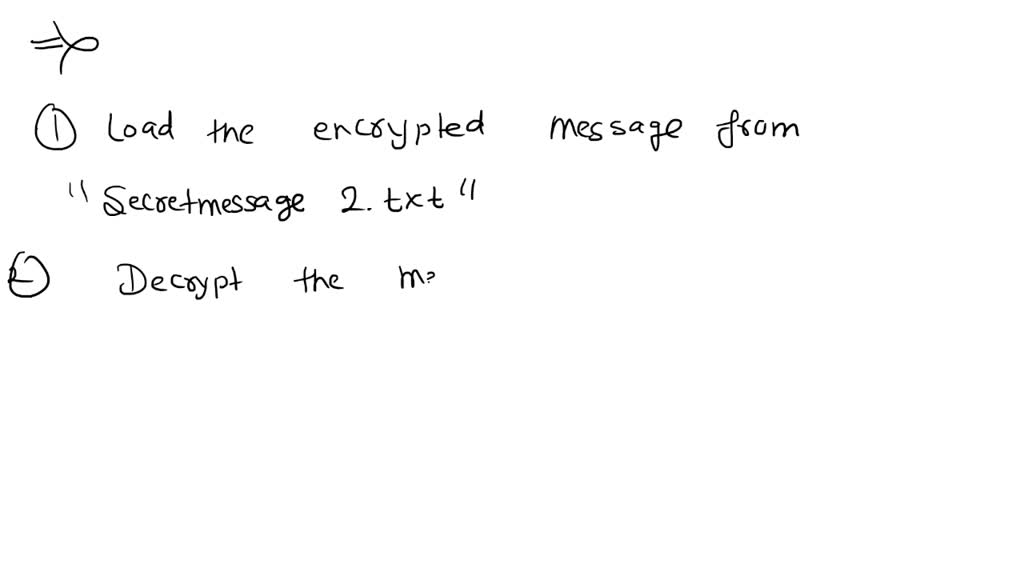 ① Load the encrypted message from
"Secretmessage 2.txt"
② Decrypt the